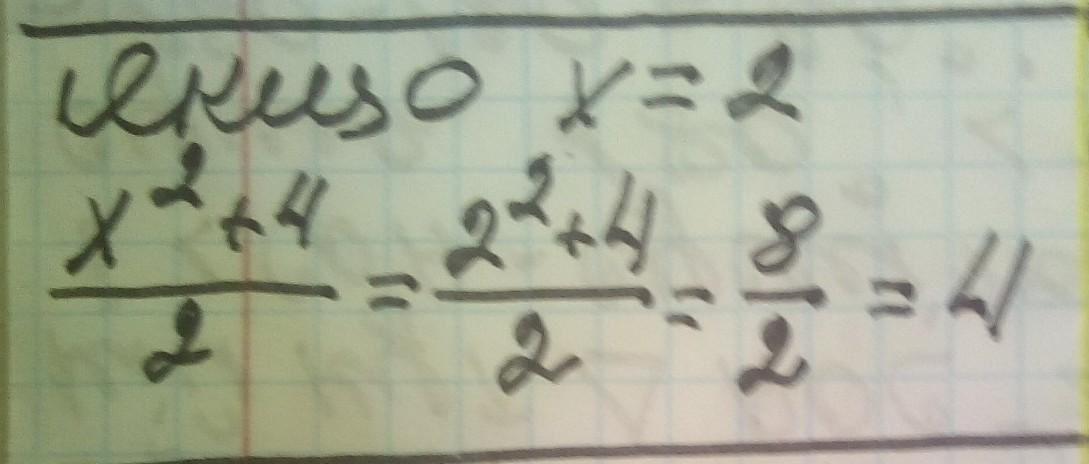 Якщо x = 2
(x²+4)/2 = (2²+4)/2 = 8/2 = 4